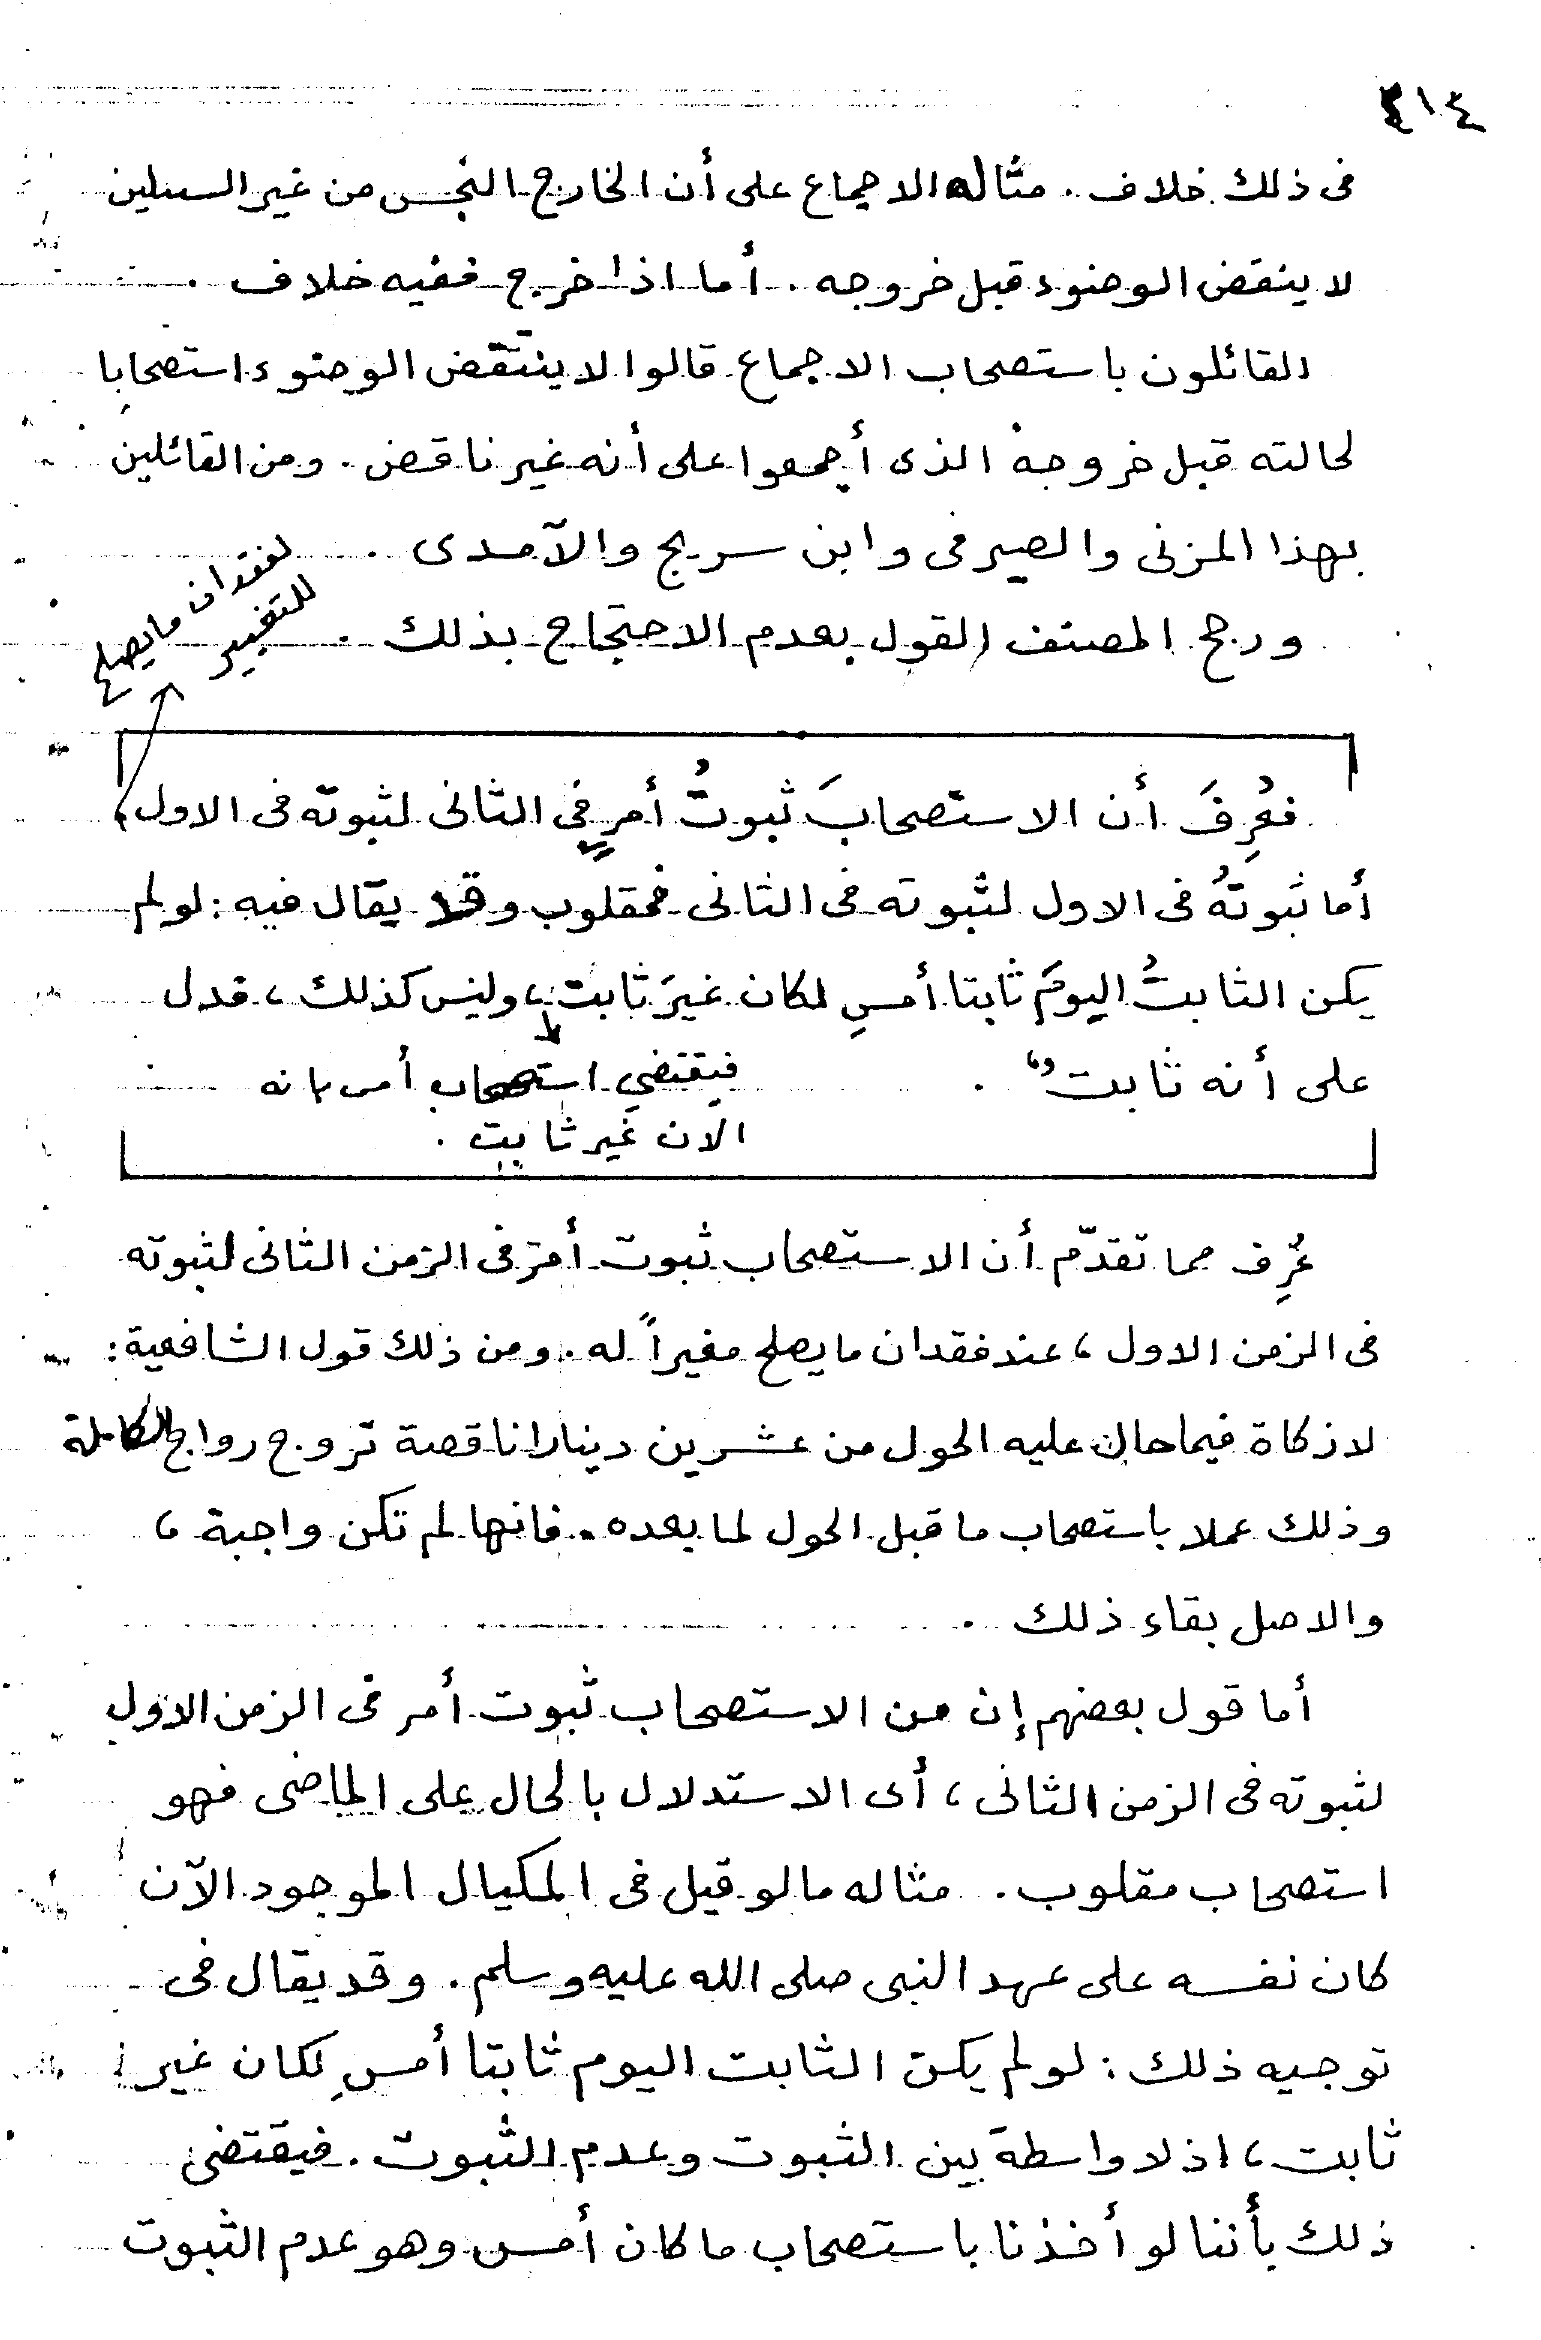 ٣١٤
فى ذلك خلاف . مثاله الاجماع على أن الخارج النجس من غير السبيلين
لا ينقض الوضوء قبل خروجه . أما اذا خرج ففيه خلاف .
القائلون باستصحاب الاجماع قالوا لا ينتقض الوضوء استصحابا
لحالته قبل خروجه الذى أجمعوا على أنه غير ناقض . ومن القائلين
بهذا المزنى والصيرفى وابن سريج والآمدى .
ورجح المصنف القول بعدم الاحتجاج بذلك .
لفقدان ما يصلح
للتغيير
فعُرِفَ أن الاستصحابَ ثبوتُ أمرٍ فِى الثانى لثبوته فى الاول ،
أما ثبوتهُ فى الاول لثبوته فى الثانى فمقلوب وقد يقال فيه : لو لم
يكن الثابتُ اليومَ ثابتا أمسِ لكان غيرَ ثابت ، وليس كذلك ، فدل
على أنه ثابت " .
فيقتضي استصحاب أمس بانه
الآن غير ثابت .
عُرِف مما تقدّم أن الاستصحاب ثبوت أمر فى الزمن الثانى لثبوته
فى الزمن الاول ، عند فقدان ما يصلح مغيراً له . ومن ذلك قول الشافعية :
لا زكاة فيما حال عليه الحول من عشرين دينارا ناقصة تروج رواج الكاملة
وذلك عملا باستصحاب ما قبل الحول لما بعده . فانها لم تكن واجبة ،
والاصل بقاء ذلك .
أما قول بعضهم إن من الاستصحاب ثبوت أمر فى الزمن الاول
لثبوته فى الزمن الثانى ، أى الاستدلال بالحال على الماضى فهو
استصحاب مقلوب . مثاله ما لو قيل فى المكيال الموجود الآن
كان نفسه على عهد النبى صلى الله عليه وسلم . وقد يقال فى
توجيه ذلك : لو لم يكن الثابت اليوم ثابتا أمسِ لكان غير
ثابت ، اذ لا واسطة بين الثبوت وعدم الثبوت . فيقتضى
ذلك بأننا لو أخذنا باستصحاب ما كان أمس وهو عدم الثبوت